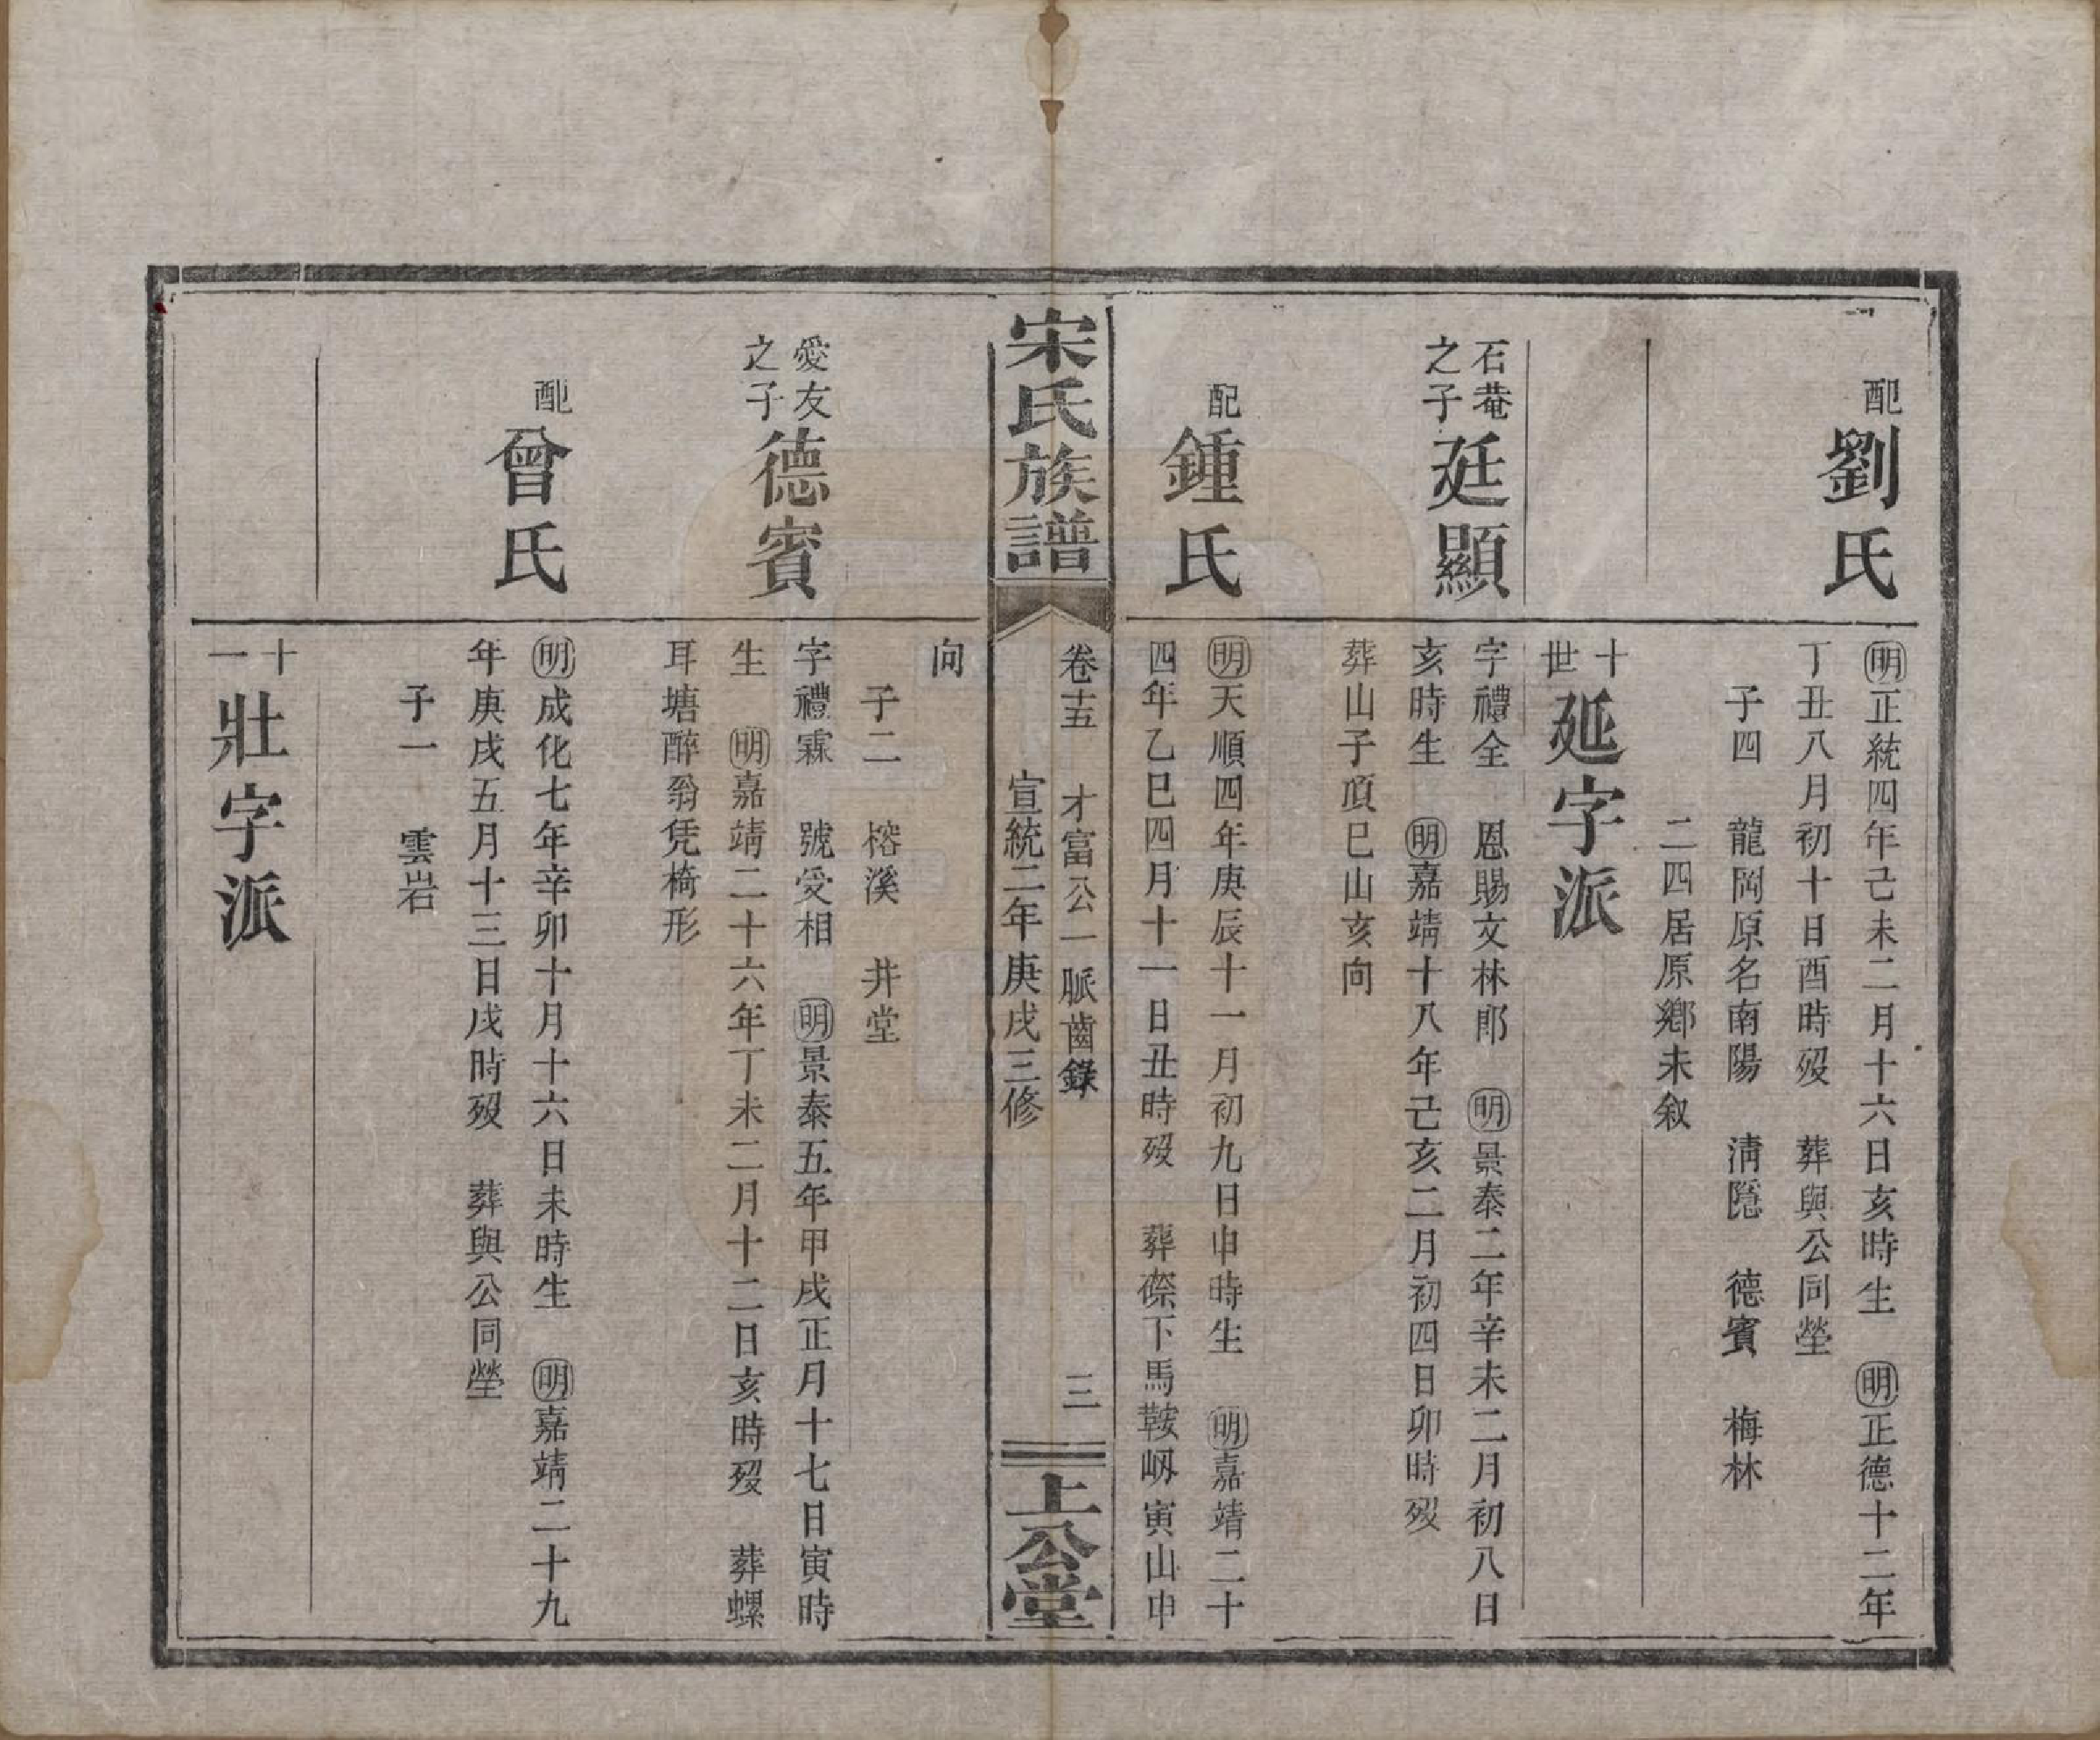 配劉氏
明正統四年己未二月十六日亥時生　明正德十二年
丁丑八月初十日酉時歿　葬與公同塋
子四　龍岡原名南陽　清隱　德賓　梅林
二四居原鄉未叙
十世　延字派
石菴之子　廷顯
字禮全　恩賜文林郎　明景泰二年辛未二月初八日
亥時生　明嘉靖十八年己亥二月初四日卯時歿
葬山子頂巳山亥向
配鍾氏
明天順四年庚辰十一月初九日申時生　明嘉靖二十
四年乙巳四月十一日丑時歿　葬磜下馬鞍㘭寅山申
宋氏族譜
卷十五　才富公一脈齒錄　三
宣統二年庚戌三修
上公堂
向
子二　榕溪　井堂
愛友之子　德賓
字禮霖　號受相　明景泰五年甲戌正月十七日寅時
生　明嘉靖二十六年丁未二月十二日亥時歿　葬螺
耳塘醉翁凭椅形
配曾氏
明成化七年辛卯十月十六日未時生　明嘉靖二十九
年庚戌五月十三日戌時歿　葬與公同塋
子一　雲岩
十一　壯字派